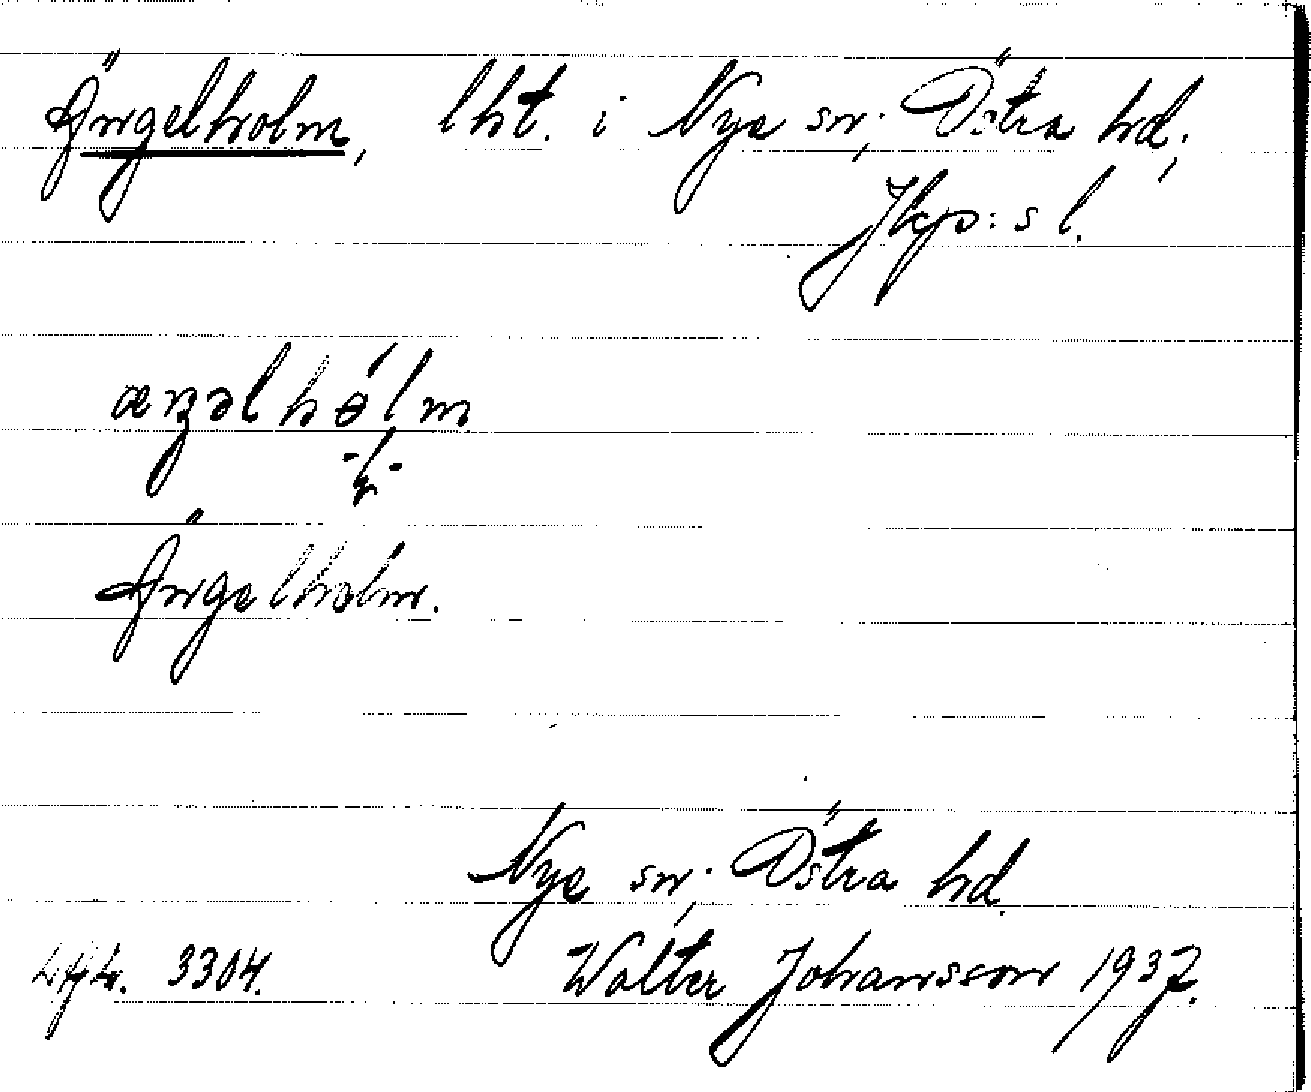 Ängelholm, lht. i Nye sn; Östra hd;
Jkp:s l.
Ängelholm.
Nye sn; Östra hd.
3304. Walter Johansson 1937.